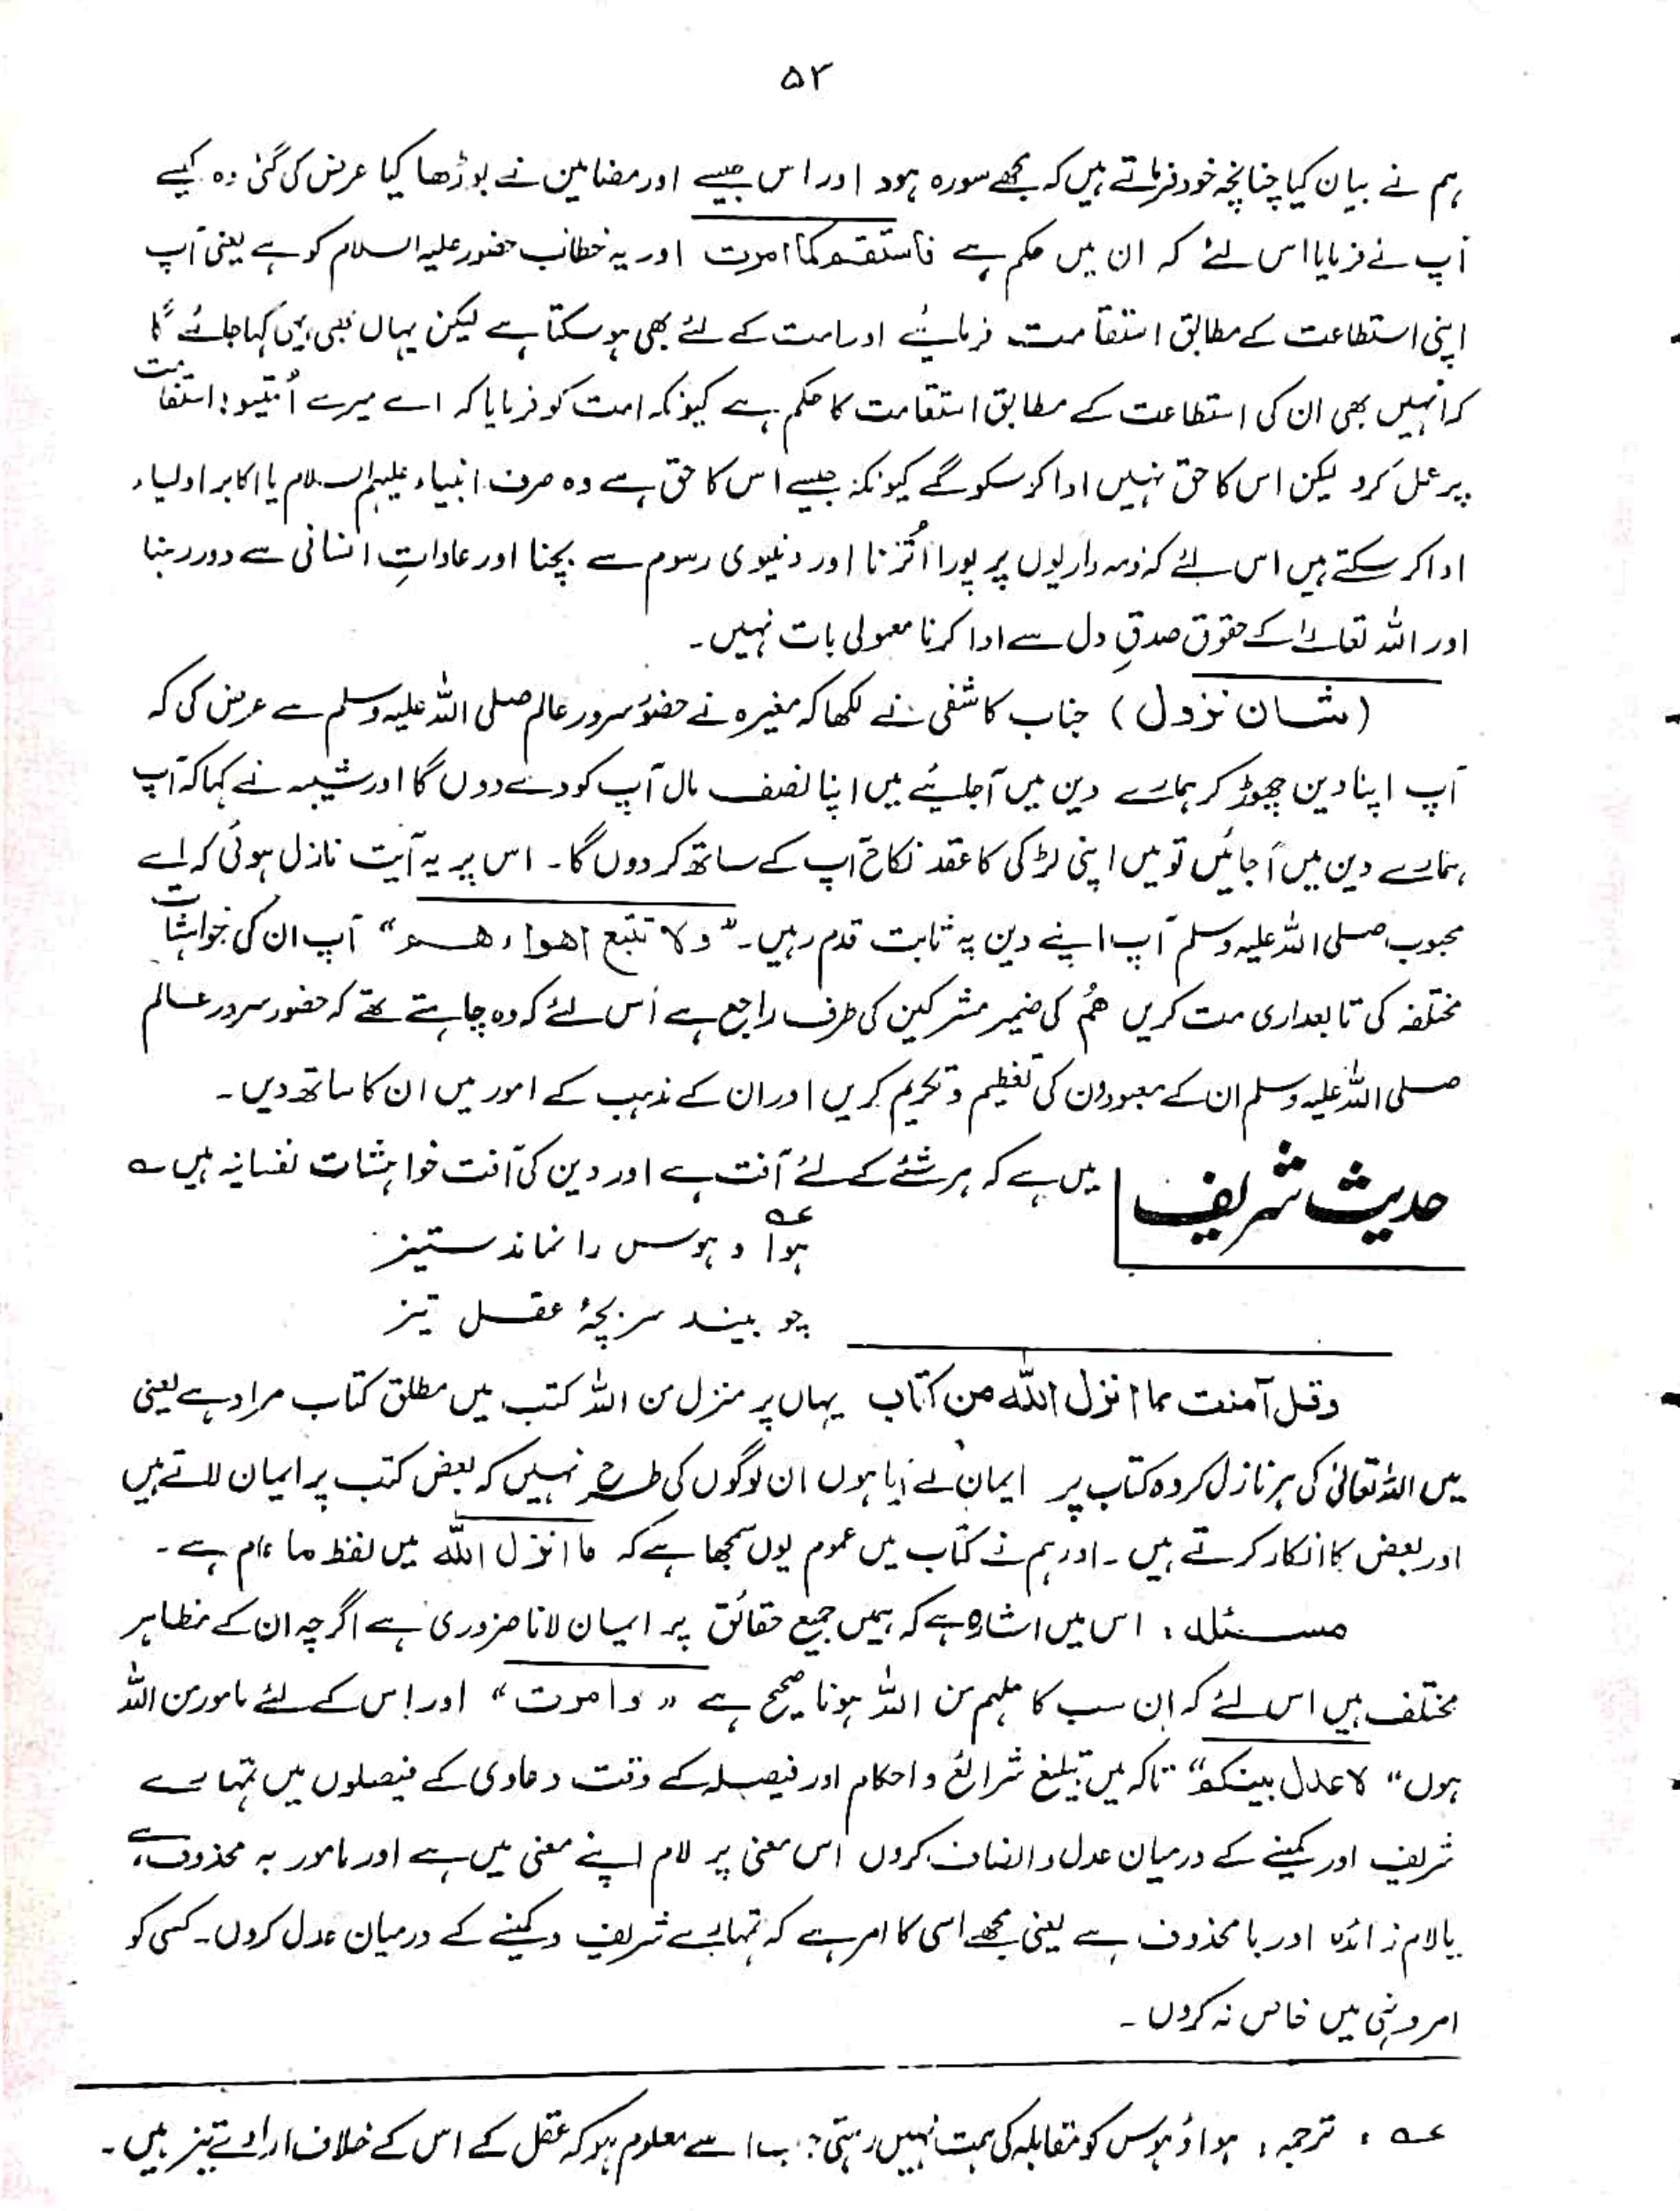 ۵۲
ہم نے بیان کیا چنانچہ خود فرماتے ہیں کہ مجھے سورہ ہود اور اس جیسے اور مضامین نے بوڑھا کیا عرض کی گئی وہ کیسے
آپ نے فرمایا اس لئے کہ ان میں حکم ہے فاستقم کما امرت اور یہ خطاب حضور علیہ السلام کو ہے یعنی آپ
اپنی استطاعت کے مطابق استقامت فرمایئے اور امت کے لئے بھی ہو سکتا ہے لیکن یہاں بھی یہی کہا جائے گا
کہ انہیں بھی ان کی استطاعت کے مطابق استقامت کا حکم ہے کیونکہ امت کو فرمایا کہ اے میرے اُمتیو! استقامت
پر عمل کرو لیکن اس کا حق نہیں ادا کر سکو گے کیونکہ جیسے اس کا حق ہے وہ صرف انبیاء علیہم السلام یا اکابر اولیاء
ادا کر سکتے ہیں اس لئے کہ ذمہ داریوں پر پورا اُترنا اور دنیوی رسوم سے بچنا اور عاداتِ انسانی سے دور رہنا
اور اللہ تعالےٰ کے حقوق صدقِ دل سے ادا کرنا معمولی بات نہیں۔
(شان نزول) جناب کاشفی نے لکھا کہ مغیرہ نے حضور سرور عالم صلی اللہ علیہ وسلم سے عرض کی کہ
آپ اپنا دین چھوڑ کر ہمارے دین میں آجایئے میں اپنا نصف مال آپ کو دے دوں گا اور شیبہ نے کہا کہ آپ
ہمارے دین میں آجائیں تو میں اپنی لڑکی کا عقد نکاح آپ کے ساتھ کر دوں گا۔ اس پر یہ آیت نازل ہوئی کہ اے
محبوب صلی اللہ علیہ وسلم آپ اپنے دین پہ ثابت قدم رہیں۔ "ولا تتبع اھواءھم" آپ ان کی خواہشات
مختلفہ کی تابعداری مت کریں ھُم کی ضمیر مشرکین کی طرف راجع ہے اس لئے کہ وہ چاہتے تھے کہ حضور سرور عالم
صلی اللہ علیہ وسلم ان کے معبودوں کی تعظیم و تکریم کریں اور ان کے مذہب کے امور میں ان کا ساتھ دیں۔
حدیث شریف میں ہے کہ ہر شئے کے لئے آفت ہے اور دین کی آفت خواہشات نفسانیہ ہیں ؎
ہوا و ہوس را نماند ستیز عہ
چو بیند سرپنجۂ عقل تیز
وقل آمنت بما انزل اللہ من کتاب یہاں پر منزل من اللہ کتب میں مطلق کتاب مراد ہے یعنی
میں اللہ تعالیٰ کی ہر نازل کردہ کتاب پر ایمان لے آیا ہوں ان لوگوں کی طرح نہیں کہ بعض کتب پر ایمان لاتے ہیں
اور بعض کا انکار کرتے ہیں۔ اور ہم نے کتاب میں عموم یوں سمجھا ہے کہ ما انزل اللہ میں لفظ ما عام ہے۔
مسئلہ: اس میں اشارہ ہے کہ ہمیں جمیع حقائق پر ایمان لانا ضروری ہے اگرچہ ان کے مظاہر
مختلف ہیں اس لئے کہ ان سب کا ملہم من اللہ ہونا صحیح ہے "وامرت" اور اس کے لئے مامور من اللہ
ہوں "لاعدل بینکم" تاکہ میں تبلیغ شرائع و احکام اور فیصلہ کے وقت دعاوی کے فیصلوں میں تمہارے
شریف اور کمینے کے درمیان عدل و انصاف کروں اس معنی پر لام اپنے معنی میں ہے اور مامور بہ محذوف ہے
یا لام زائدہ اور با محذوف ہے یعنی مجھے اسی کا امر ہے کہ تمہارے شریف و کمینے کے درمیان عدل کروں۔ کسی کو
امر و نہی میں خاص نہ کروں۔
عہ : ترجمہ : ہوا و ہوس کو مقابلہ کی ہمت نہیں رہتی جب اسے معلوم ہو کہ عقل کے اس کے خلاف ارادے تیز ہیں۔